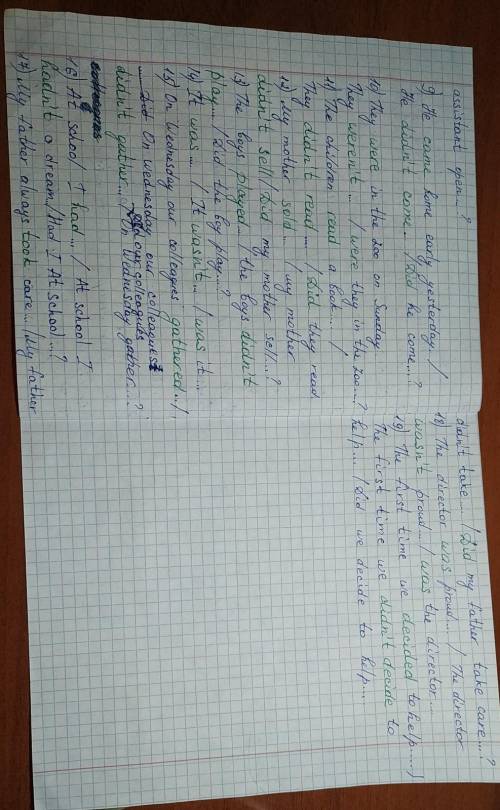 assistant open ?
9) He came home early yesterday. /
He didn't come... / Did he come...?
10) They were in the zoo on Sunday
They weren't ... / were they in the zoo...?
11) The children read a book... /
They didn't read ... / Did they read
12) My mother sold... / my mother
didn't sell / Did my mother sell...?
13) The boys played... / the boys didn't
play... / Did the boy play...?
14) It was ... / It wasn't ... / was it ...
15) On Wednesday our colleagues gathered... /
On Wednesday our colleagues
didn't gather... / Did our colleagues
On Wednesday gather...?
16) At school I had... / At school I
hadn't a dream / Had I At school...?
17) My father always took care... / My father
didn't take ... / Did my father take care...?
18) The director was proud... / The director
wasn't proud... / was the director...
19) The first time we decided to help... /
The first time we didn't decide to
help... / Did we decide to help...